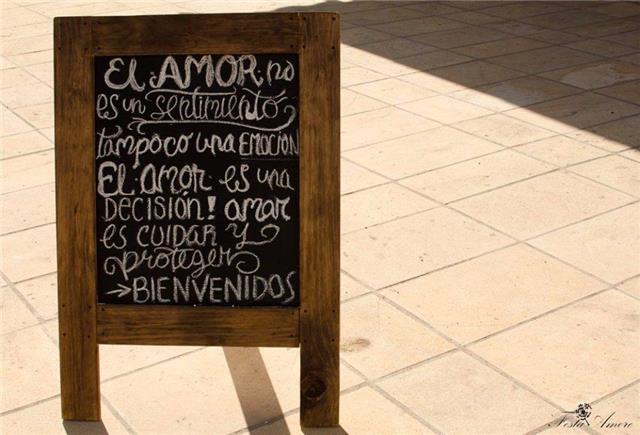 El AMOR no
es un sentimiento
tampoco una EMOCION
El amor es una
DECISIÓN! amar
es cuidar y
proteger
→BIENVENIDOS
Festa Amore